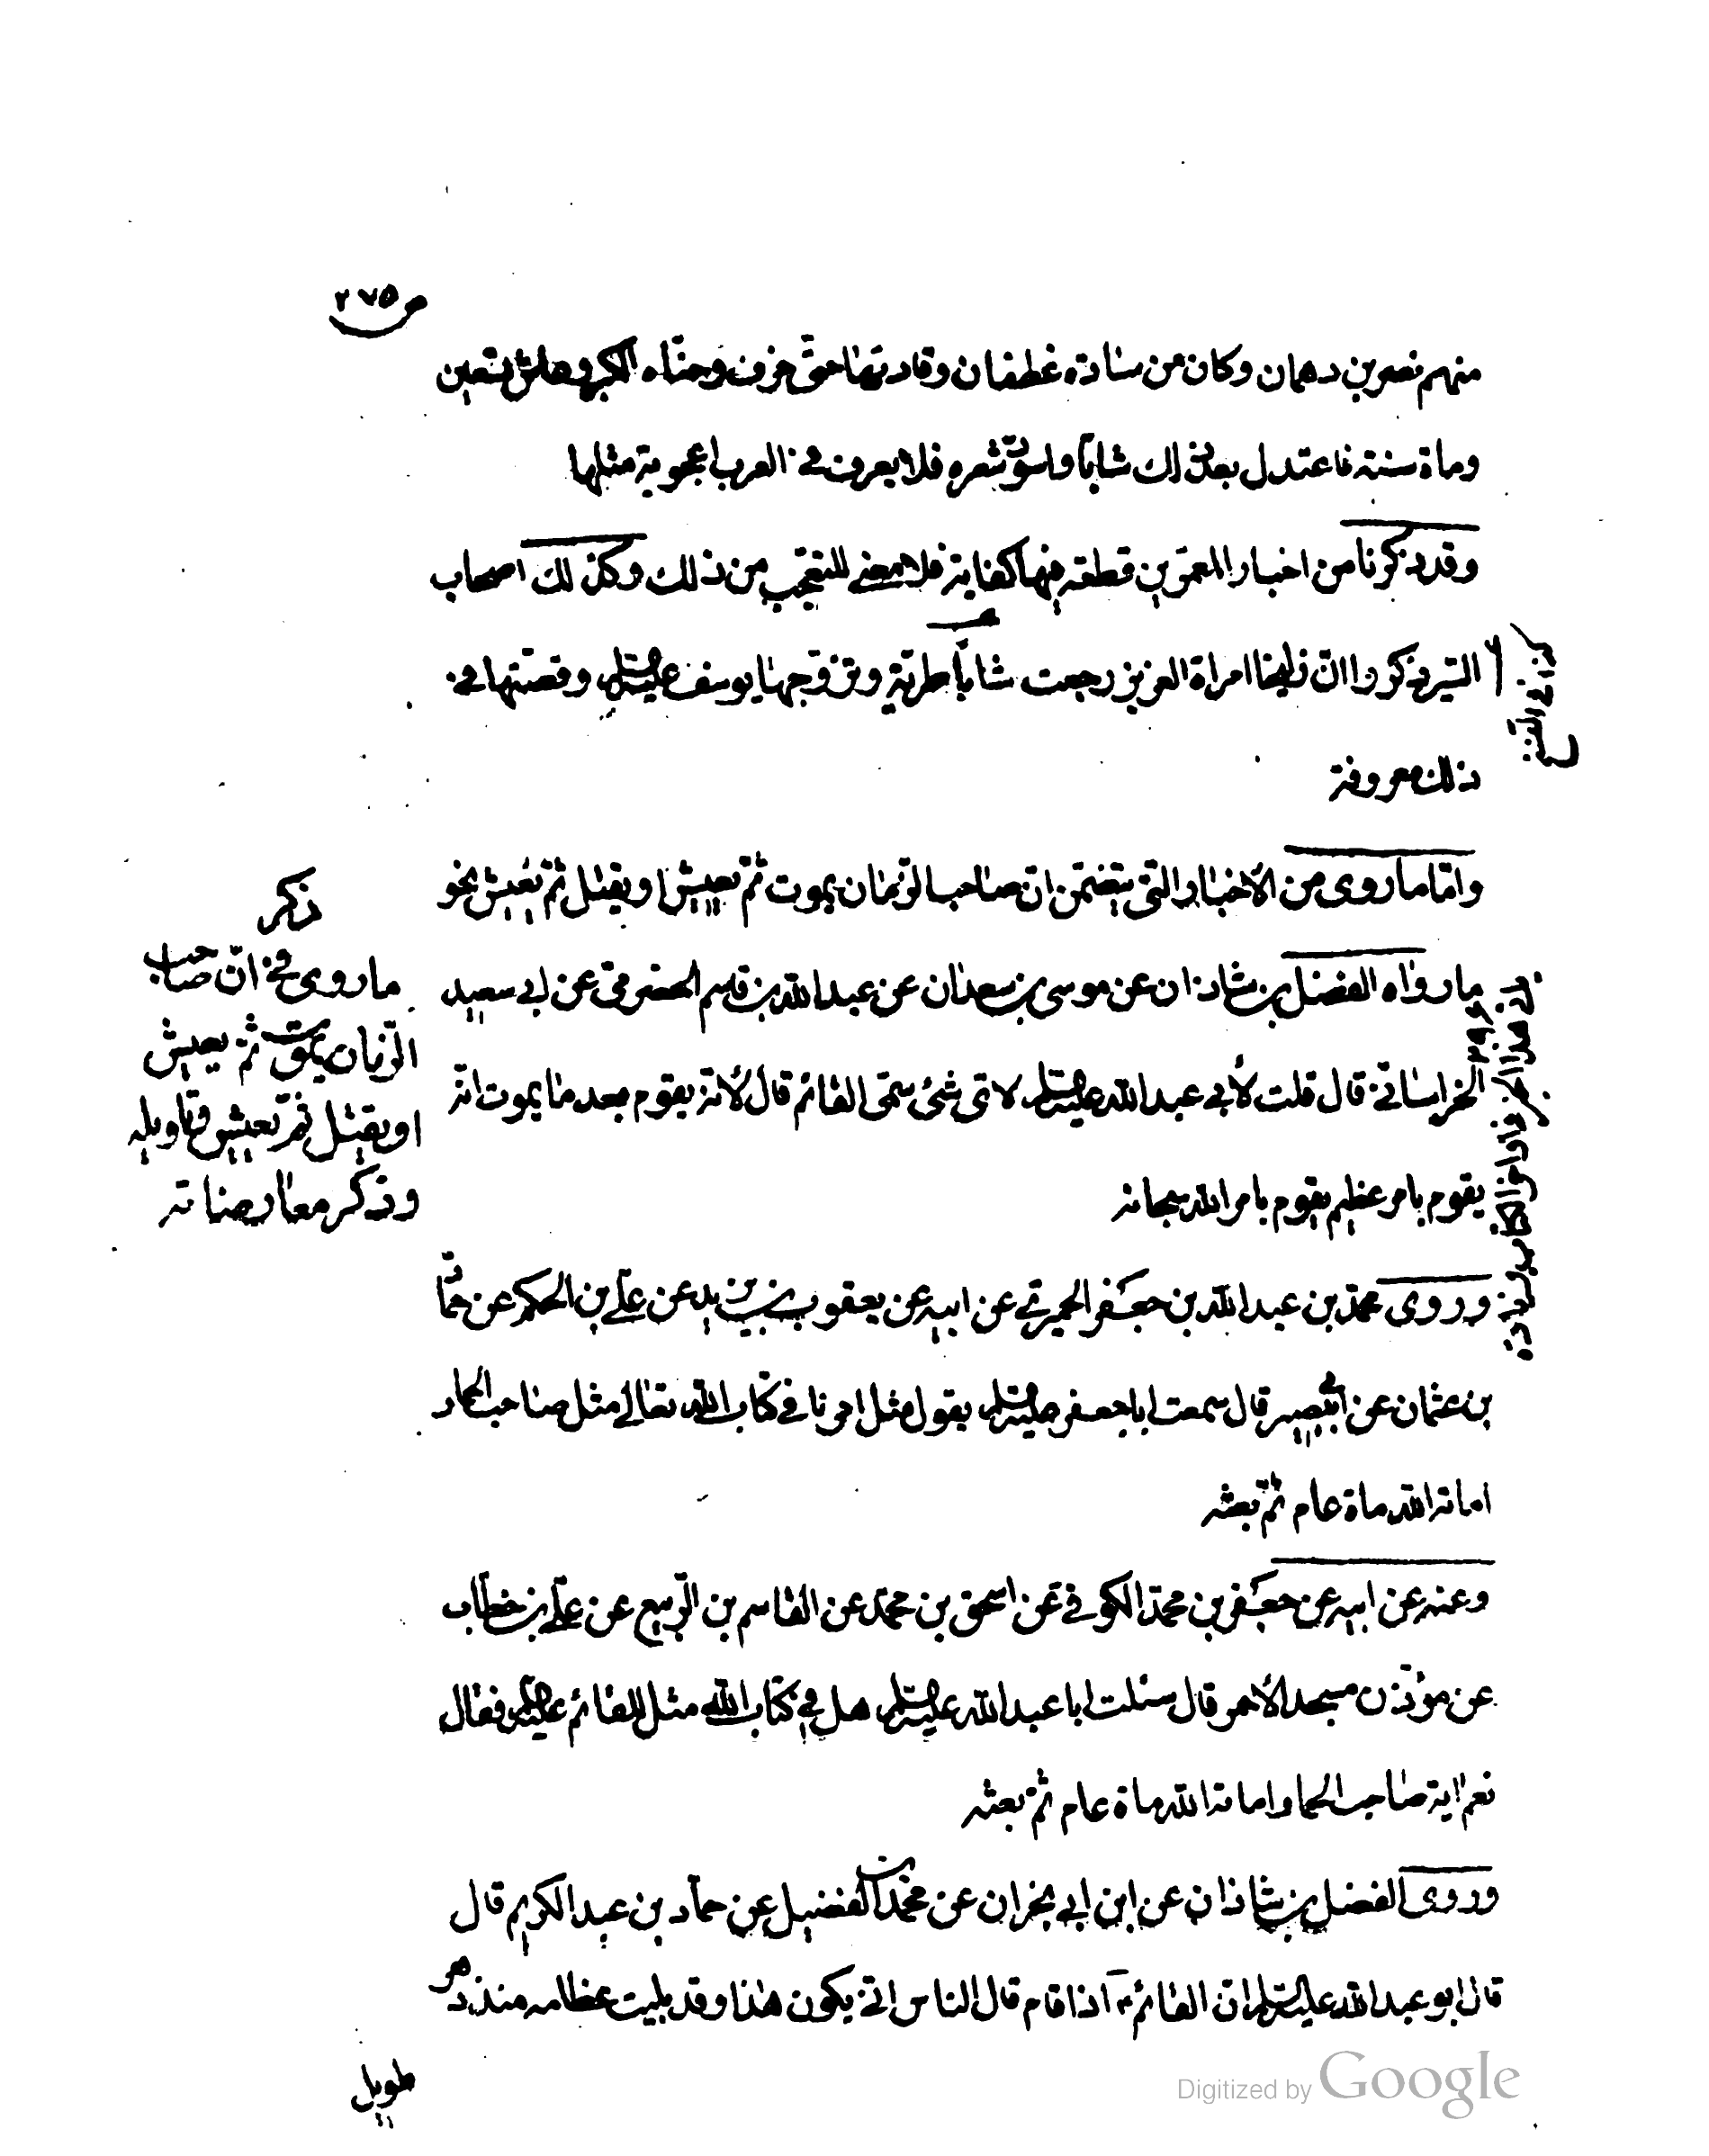 ص ٢٧٥
منهم نصر بن دهمان وكان من سادة غطفان وقادتها حتى خرف وحناه الكبر وعاش تسعين
وماة سنة فاعتدل بعد ذلك شابا واسود شعره فلا يعرف في العرب اعجوبة مثلها
وقد ذكرنا من اخبار المعمرين قطعة فيها كفاية فلا معنى للتعجب من ذلك وكذلك اصحاب
السير ذكروا ان زليخا امراة العزيز رجعت شابا طرية وتزوجها يوسف عليه السلام وقصتها في
ذلك معروفة
واما ما روى من الأخبار التي يتضمن ان صاحب الزمان يموت ثم يعيش او يقتل ثم يعيش نحو
ما رواه الفضل بن شاذان عن موسى بن سعدان عن عبد الله بن قاسم الحضرمي عن ابي سعيد
الخراساني قال قلت لأبي عبد الله عليه السلام لاي شئ سمى القائم قال لأنه يقوم بعد ما يموت انه
يقوم بامر عظيم يقوم بامر الله سبحانه
وروى محمد بن عبد الله بن جعفر الحميري عن ابيه عن يعقوب بن يزيد عن علي بن الحكم عن حماد
بن عثمان عن ابي بصير قال سمعت ابا جعفر عليه السلام يقول مثل امرنا في كتاب الله تعالى مثل صاحب الحمار
اماته الله ماة عام ثم بعثه
وعنه عن ابيه عن جعفر بن محمد الكوفي عن اسحق بن محمد عن القاسم بن الربيع عن علي بن خطاب
عن مؤذن مسجد الأحمر قال سئلت ابا عبد الله عليه السلام هل في كتاب الله مثل للقائم عليه السلام فقال
نعم اية صاحب الحمار اماته الله ماة عام ثم بعثه
وروى الفضل بن شاذان عن ابن ابي نجران عن محمد بن الفضيل عن حماد بن عبد الكريم قال
قال ابو عبد الله عليه السلام ان القائم ع اذا قام قال الناس انى يكون هذا وقد بليت عظامه منذ دهر
طويل
ذكر
ما روى في ان صاحب
الزمان يموت ثم يعيش
او يقتل ثم يعيش وتاويله
وذكر معارضاته
Digitized by Google